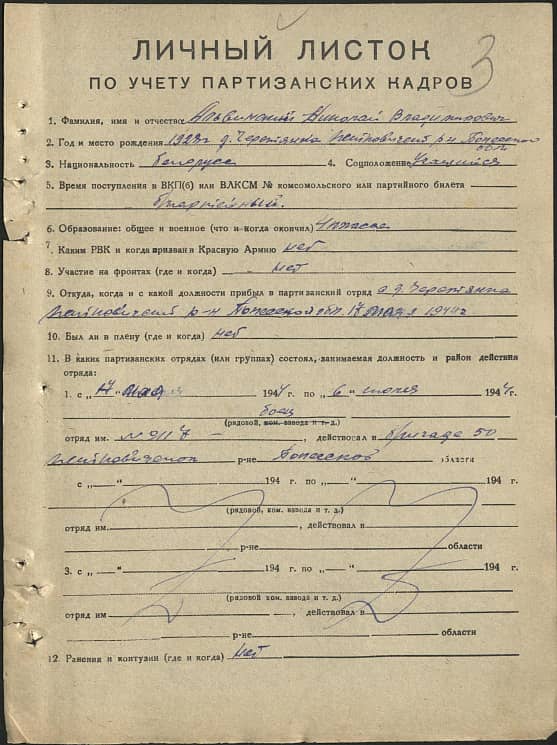 3
ЛИЧНЫЙ ЛИСТОК
ПО УЧЕТУ ПАРТИЗАНСКИХ КАДРОВ
1. Фамилия, имя и отчество Николай Владимирович
2. Год и место рождения 1923г д. р-н Полесской
обл
3. Национальность белорус 4. Соцположение Учащийся
5. Время поступления в ВКП(б) или ВЛКСМ № комсомольского или партийного билета
безпартейный.
6. Образование: общее и военное (что и когда окончил) 4 класса
7. Каким РВК и когда призван в Красную Армию нет
8. Участие на фронтах (где и когда) нет
9. Откуда, когда и с какой должности прибыл в партизанский отряд с д.
р-н Полесской обл. 17 мая 1944г
10. Был ли в плену (где и когда) нет
11. В каких партизанских отрядах (или группах) состоял, занимаемая должность и район действия
отряда:
1. с „17“ мая 1944 г. по „6“ июля 1944 г.
боец
(рядовой, ком. взвода и т. д.)
отряд им. , действовал в бригаде 50
р-не Полесской области
с „ “ 194 г. по „ “ 194 г.
(рядовой, ком. взвода и т. д.)
отряд им. , действовал в
р-не области
3. с „ “ 194 г. по „ “ 194 г.
(рядовой, ком. взвода и т. д.)
отряд им , действовал в
р-не области
12. Ранения и контузии (где и когда) нет